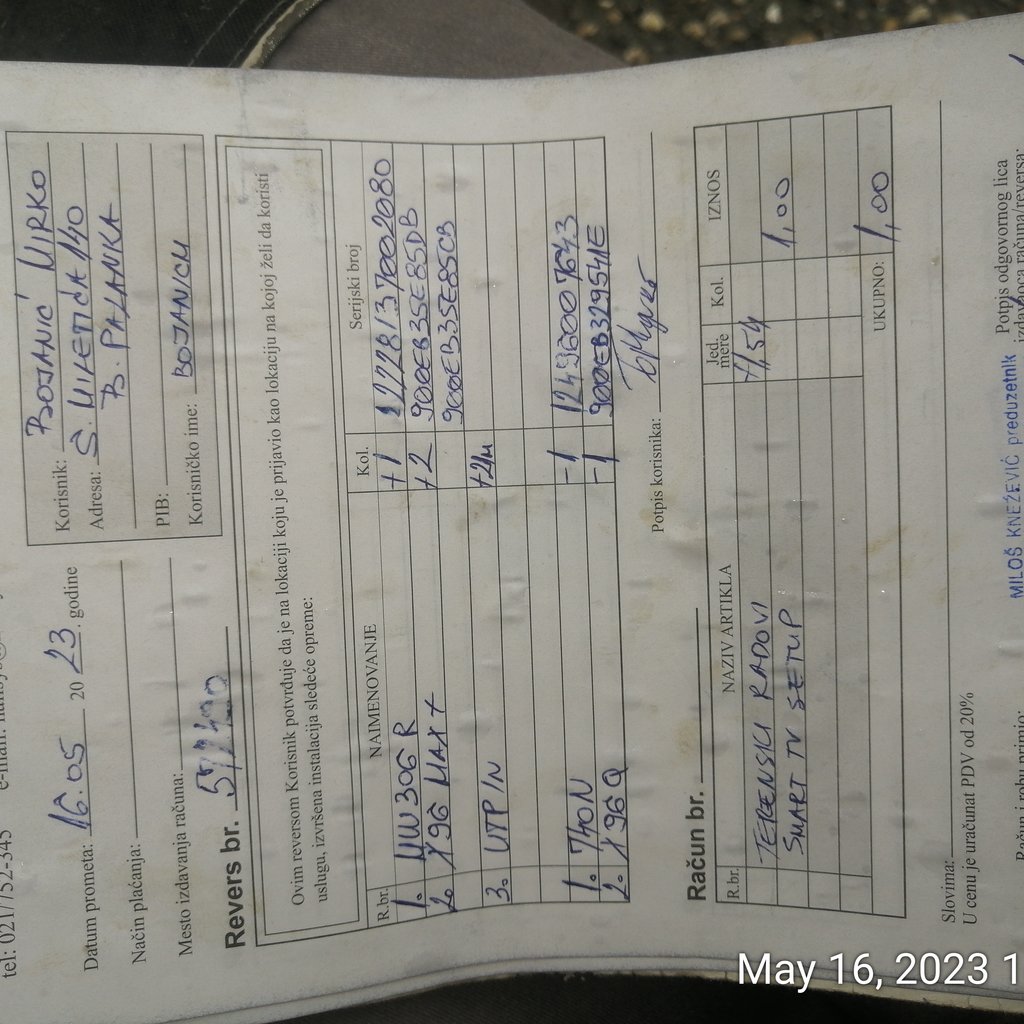 tel: 021/752-345
Datum prometa: 16.05 2023. godine
Način plaćanja:
Mesto izdavanja računa:
Korisnik: BOJANIĆ MIRKO
Adresa: S. MILETIĆA 140
B. PALANKA
PIB:
Korisničko ime: BOJANICM
Revers br.
Ovim reversom Korisnik potvrđuje da je na lokaciji koju je prijavio kao lokaciju na kojoj želi da koristi
uslugu, izvršena instalacija sledeće opreme:
R.br. NAIMENOVANJE Kol. Serijski broj
1. MW306R +1 2228137002080
2. X96 MAX+ +2 900EB35E85DB
900EB35E85CB
3. UTP IN +21M
1. 740N -1 12496007643
2. X96Q -1 900EB329541E
Potpis korisnika:
Račun br.
R.br. NAZIV ARTIKLA Jed. mere Kol. IZNOS
TERENSKI RADOVI 1,54 1,00
SMART TV SETUP
UKUPNO: 1,00
Slovima:
U cenu je uračunat PDV od 20%
Račun i robu primio:
MILOŠ KNEŽEVIĆ preduzetnik
Potpis odgovornog lica
izdavaoca računa/reversa:
May 16, 2023 1